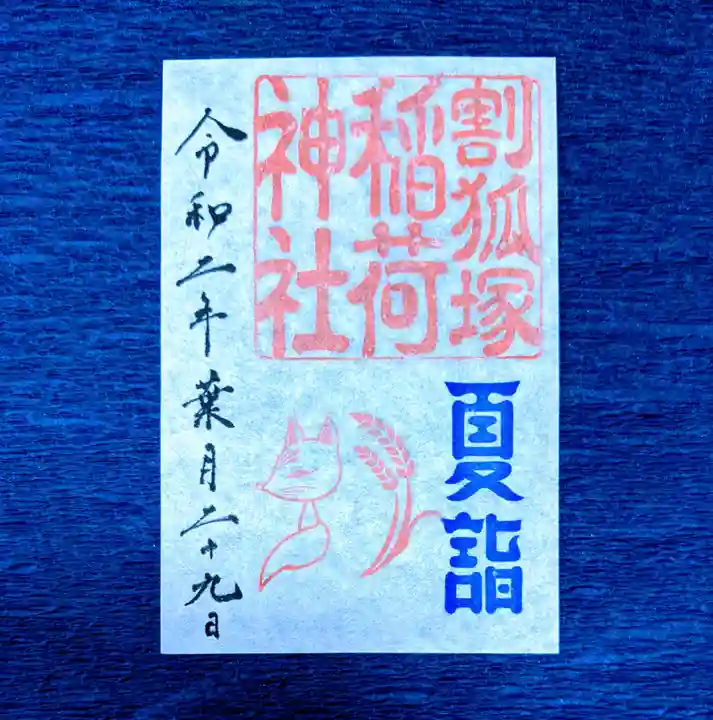 割狐塚
稲荷
神社
夏詣
令和二年葉月二十九日